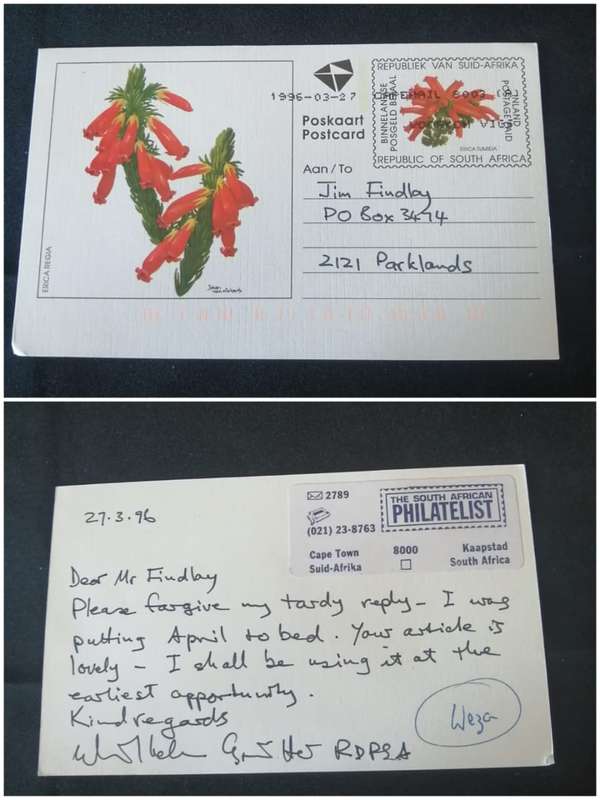 1996-03-27
REPUBLIEK VAN SUID-AFRIKA
BINNELANDSE
POSGELD BETAAL
INLAND
POSTAGE PAID
ERICA TUMIDA
REPUBLIC OF SOUTH AFRICA
Poskaart
Postcard
Aan / To
Jim Findlay
PO Box 3474
2121 Parklands
ERICA REGIA
27.3.96
2789
(021) 23-8763
THE SOUTH AFRICAN
PHILATELIST
Cape Town 8000 Kaapstad
Suid-Afrika South Africa
Dear Mr Findlay
Please forgive my tardy reply – I was
putting April to bed. Your article is
lovely – I shall be using it at the
earliest opportunity.
Kind regards
RDPSA
Weza